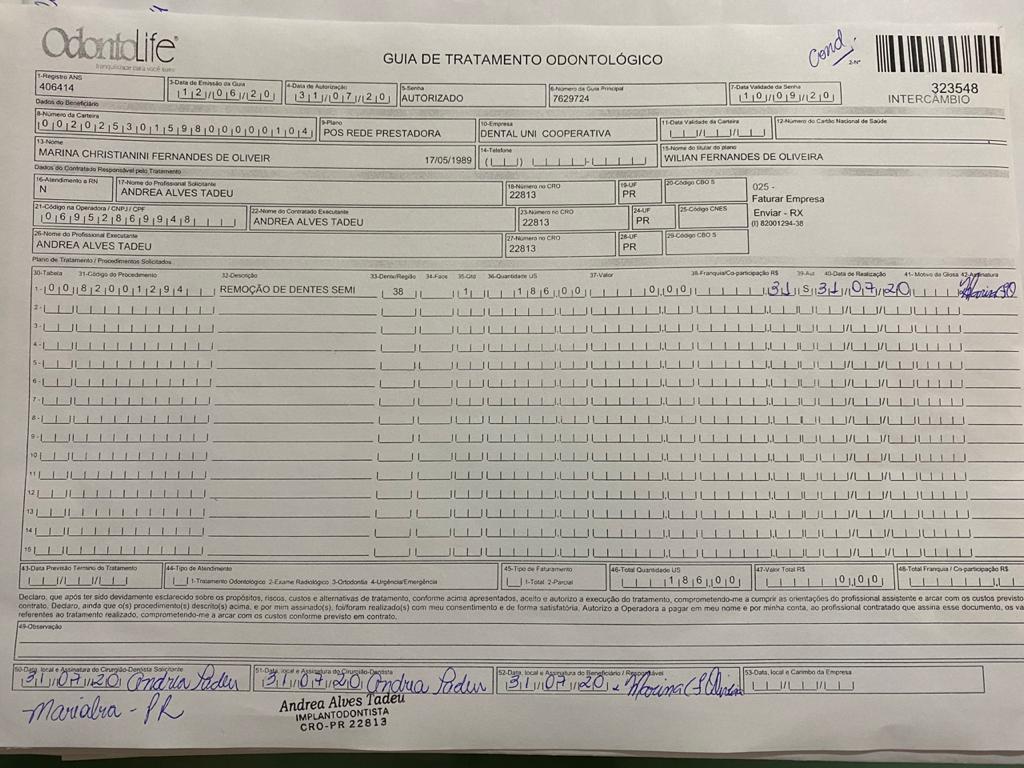 OdontoLife
tranquilidade para você sorrir
GUIA DE TRATAMENTO ODONTOLÓGICO
Cond.
2-Nº
323548
INTERCÂMBIO
1-Registro ANS
406414
3-Data de Emissão da Guia
12/06/20
4-Data de Autorização
31/07/20
5-Senha
AUTORIZADO
6-Número da Guia Principal
7629724
7-Data Validade da Senha
10/09/20
Dados do Beneficiário
8-Número da Carteira
00202530159800000104
9-Plano
POS REDE PRESTADORA
10-Empresa
DENTAL UNI COOPERATIVA
11-Data Validade da Carteira
12-Número do Cartão Nacional de Saúde
13-Nome
MARINA CHRISTIANINI FERNANDES DE OLIVEIR 17/05/1989
14-Telefone
15-Nome do titular do plano
WILIAN FERNANDES DE OLIVEIRA
Dados do Contratado Responsável pelo Tratamento
16-Atendimento a RN
N
17-Nome do Profissional Solicitante
ANDREA ALVES TADEU
18-Número no CRO
22813
19-UF
PR
20-Código CBO S
025 -
Faturar Empresa
Enviar - RX
(I) 82001294-38
21-Código na Operadora / CNPJ / CPF
06952869948
22-Nome do Contratado Executante
ANDREA ALVES TADEU
23-Número no CRO
22813
24-UF
PR
25-Código CNES
26-Nome do Profissional Executante
ANDREA ALVES TADEU
27-Número no CRO
22813
28-UF
PR
29-Código CBO S
Plano de Tratamento / Procedimentos Solicitados
30-Tabela 31-Código do Procedimento 32-Descrição 33-Dente/Região 34-Face 35-Qtd 36-Quantidade US 37-Valor 38-Franquia/Co-participação R$ 39-Aut 40-Data de Realização 41- Motivo da Glosa 42-Assinatura
1- 00 82001294 REMOÇÃO DE DENTES SEMI 38 1 186,00 0,00 31 S 31/07/20
2-
3-
4-
5-
6-
7-
8-
9-
10
11
12
13
14
15
43-Data Previsão Término do Tratamento
44-Tipo de Atendimento
1-Tratamento Odontológico 2-Exame Radiológico 3-Ortodontia 4-Urgência/Emergência
45-Tipo de Faturamento
1-Total 2-Parcial
46-Total Quantidade US
186,00
47-Valor Total R$
0,00
48-Total Franquia / Co-participação R$
Declaro, que após ter sido devidamente esclarecido sobre os propósitos, riscos, custos e alternativas de tratamento, conforme acima apresentados, aceito e autorizo a execução do tratamento, comprometendo-me a cumprir as orientações do profissional assistente e arcar com os custos previsto
contrato. Declaro, ainda que o(s) procedimento(s) descrito(s) acima, e por mim assinado(s), foi/foram realizado(s) com meu consentimento e de forma satisfatória. Autorizo a Operadora a pagar em meu nome e por minha conta, ao profissional contratado que assina esse documento, os va
referentes ao tratamento realizado, comprometendo-me a arcar com os custos conforme previsto em contrato.
49-Observação
50-Data, local e Assinatura do Cirurgião-Dentista Solicitante
31/07/20 Andrea Tadeu
51-Data, local e Assinatura do Cirurgião-Dentista
31/07/20 Andrea Tadeu
52-Data, local e Assinatura do Beneficiário / Responsável
31/07/20
53-Data, local e Carimbo da Empresa
Marialva - PR
Andrea Alves Tadeu
IMPLANTODONTISTA
CRO-PR 22813